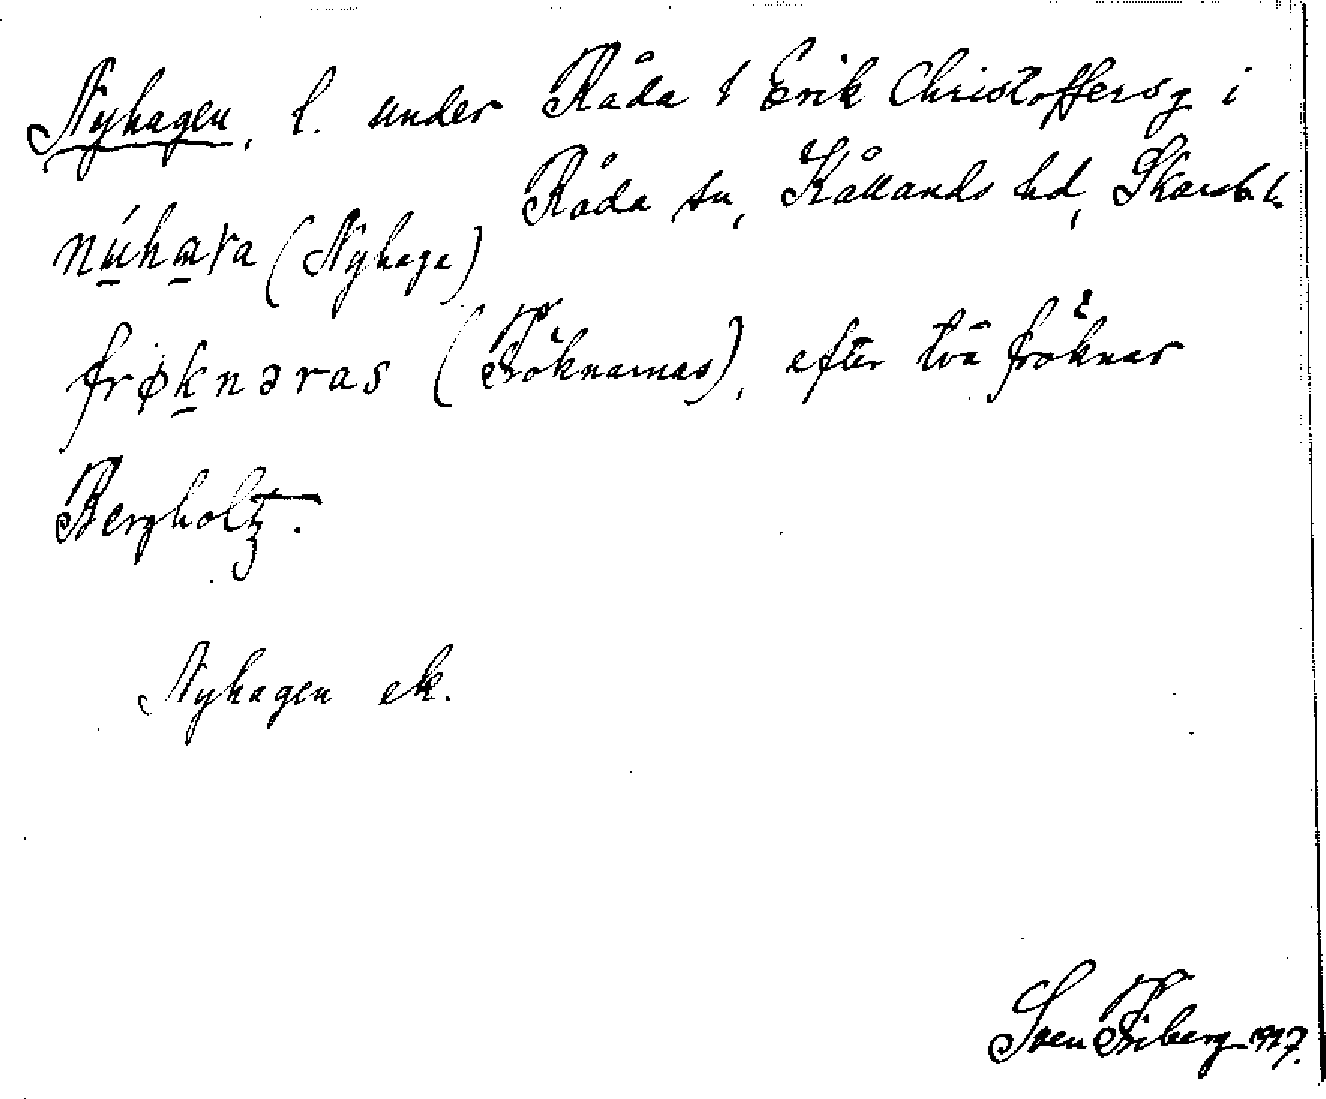 Nyhagen, l. under Råda 1 Erik Christoffersg i
Råda sn, Kållands hd, Skarab. l.
núhaɤa (Nyhaga)
frøknəras (Fröknarnas), efter två fröknar
Bergholtz.
Nyhagen ek.
Sven Friberg 1927.